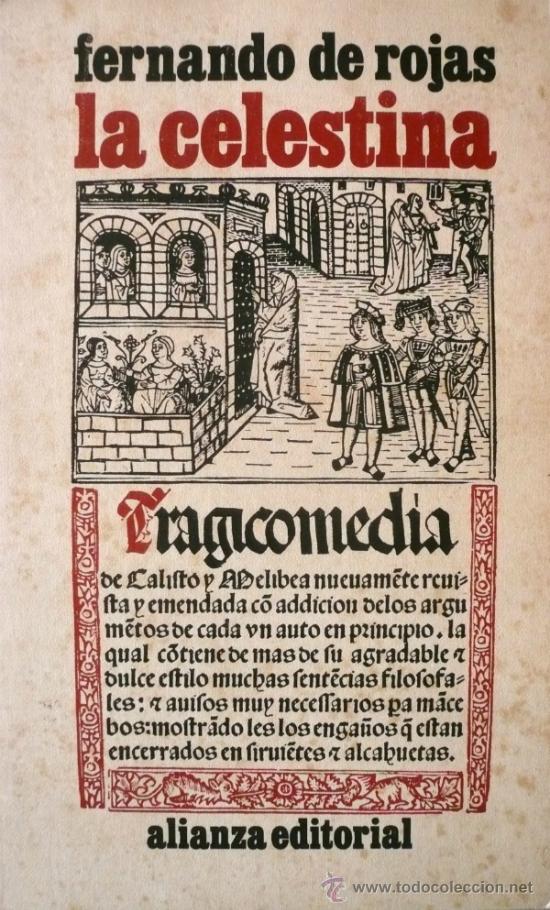 fernando de rojas
la celestina
Tragicomedia
de Calisto y Melibea nueuamẽte reui⸗
sta y emendada cõ addicion delos argu
mẽtos de cada vn auto en principio. la
qual cõtiene de mas de su agradable ⁊
dulce estilo muchas sentẽcias filosofa⸗
les: ⁊ auisos muy necessarios ꝑa mãce
bos: mostrãdo les los engaños q̃ estan
encerrados en siruiẽtes ⁊ alcahuetas.
alianza editorial
www.todocoleccion.net